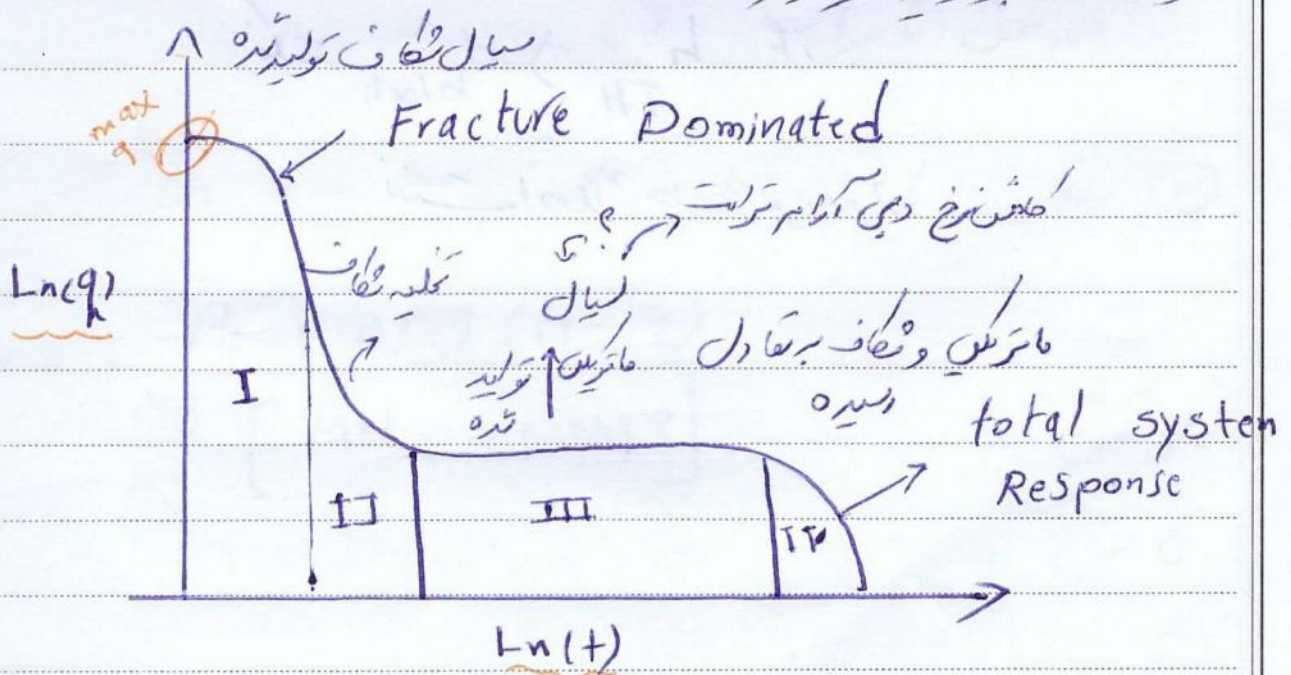 سیال شکاف تولید شده
max
q
Fracture Dominated
کاهش نرخ دبی آرام تر است
؟
Ln(q)
تخلیه شکاف
سیال
ماتریکس تولید
شده
ماتریکس و شکاف به تعادل
رسیده
total system
Response
I
II
III
IV
Ln(t)